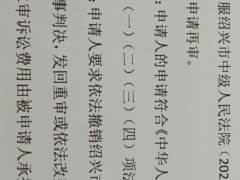 服绍兴市中级人民法院（202
申请再审。
：申请人的申请符合《中华人
（一）（二）（三）（四）项法
：申请人要求依法撤销绍兴
事判决，发回重审或依法改
审诉讼费用由被申请人承